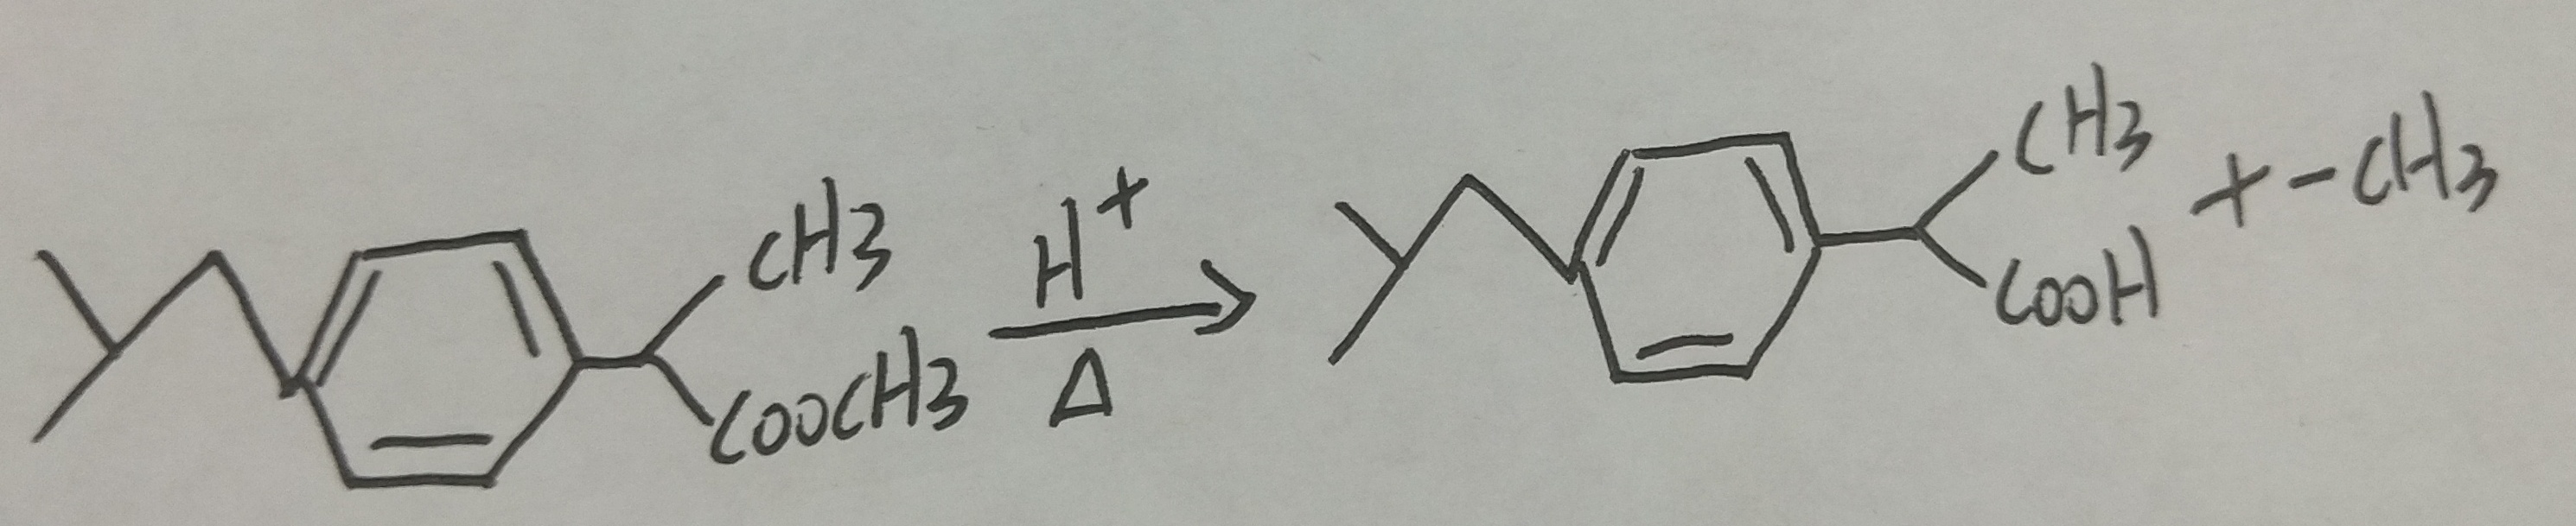 CH3
COOCH3
H+
Δ
CH3
COOH
+ -CH3